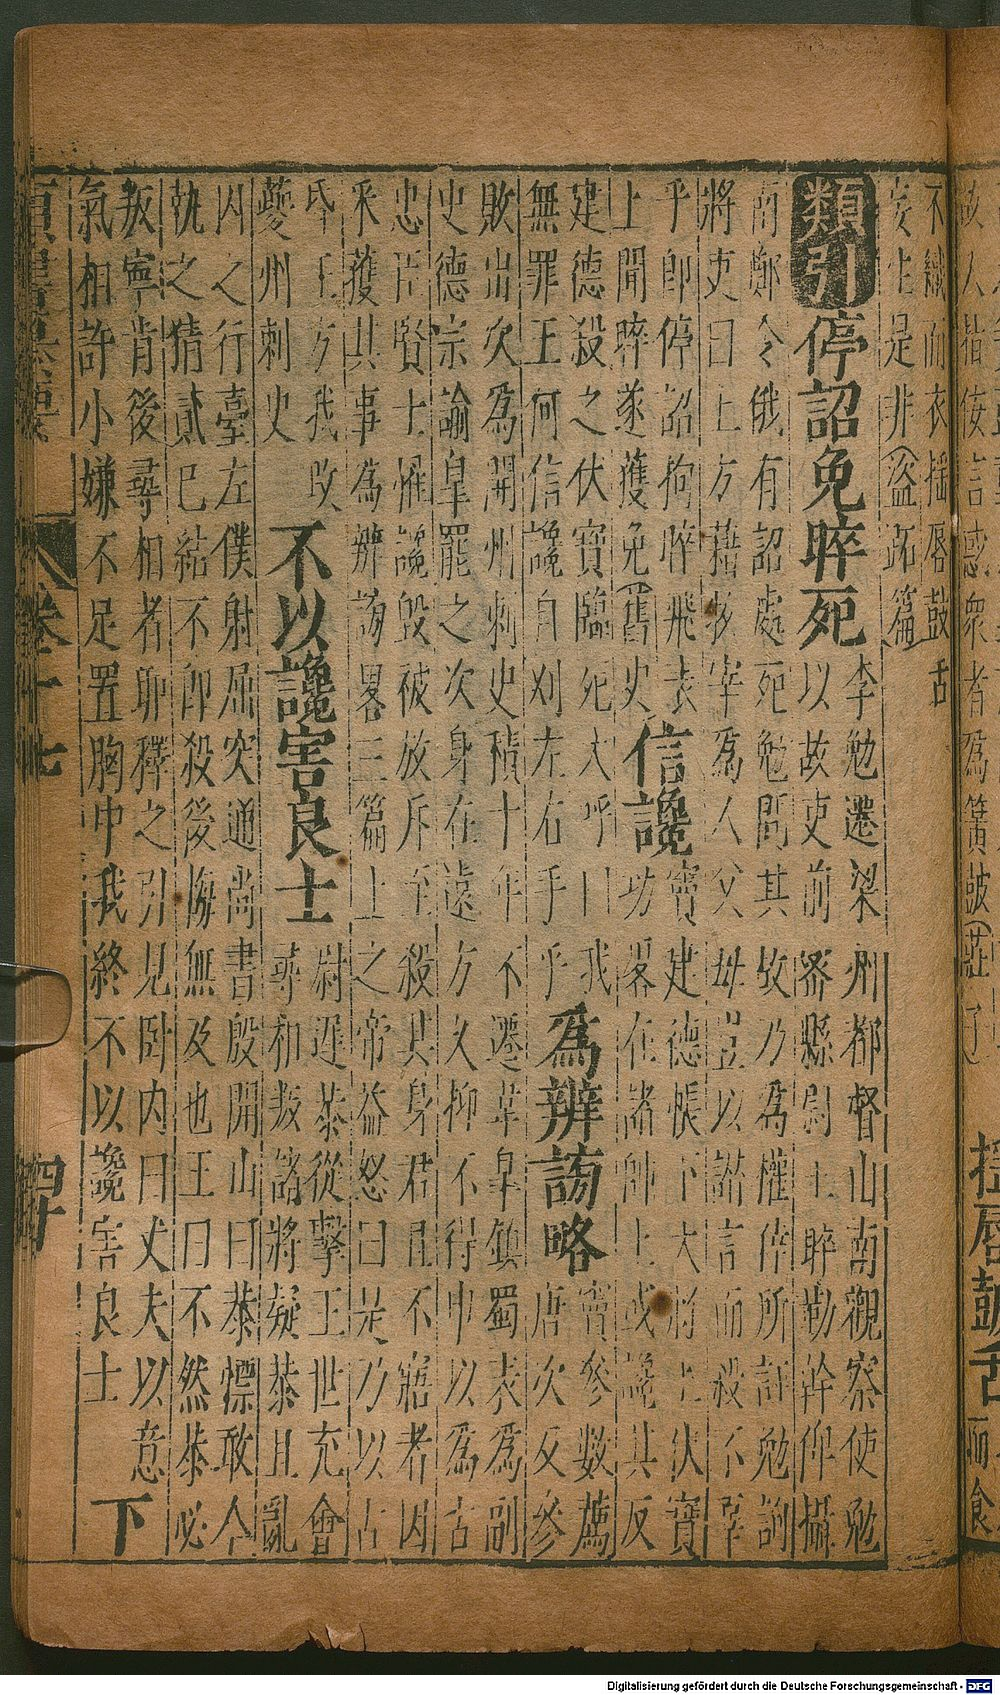 故人偕侫言惑衆者為簧鼓(莊子) 揺唇鼓舌 而食
不織而衣揺唇鼓舌
妄生是非(盜跖篇)
類引 停詔免晬死 李勉遷梁州都督山南觀察使勉
以故吏前密縣尉王晬勤幹仰攝
南鄭令俄有詔處死勉問其故乃為權倖所訐勉詢
將吏曰上方藉牧宰為人父母豈以譖言而殺不辜
乎卽停詔拘晬飛表
上聞晬遂獲免(舊史 信讒 竇建德帳下大將王伏寶
功畧在諸帥上或讒其反
建德殺之伏寶臨死大呼曰我
無罪王何信讒自刈左右手乎 為辨謗略 竇參數薦
唐次及參
敗出次為開州刺史積十年不遷韋皐鎮蜀表為副
史德宗諭皐罷之次身在遠方久抑不得申以為古
忠臣賢士罹讒毀被放斥至殺其身君且不寤者因
采獲其事為辨謗畧三篇上之帝益怒曰是乃以古
昏主方我改
夔州刺史 不以讒害良士 尉遲恭從擊王世充會
尋相叛諸將疑恭且亂
囚之行臺左僕射屈突通尚書殷開山曰恭慓敢今
執之猜貳已結不卽殺後悔無及也王曰不然恭必
叛寧肯後尋相者耶釋之引見臥内曰丈夫以意
氣相許小嫌不足置胸中我終不以讒害良士 下
卷十七
Digitalisierung gefördert durch die Deutsche Forschungsgemeinschaft - DFG